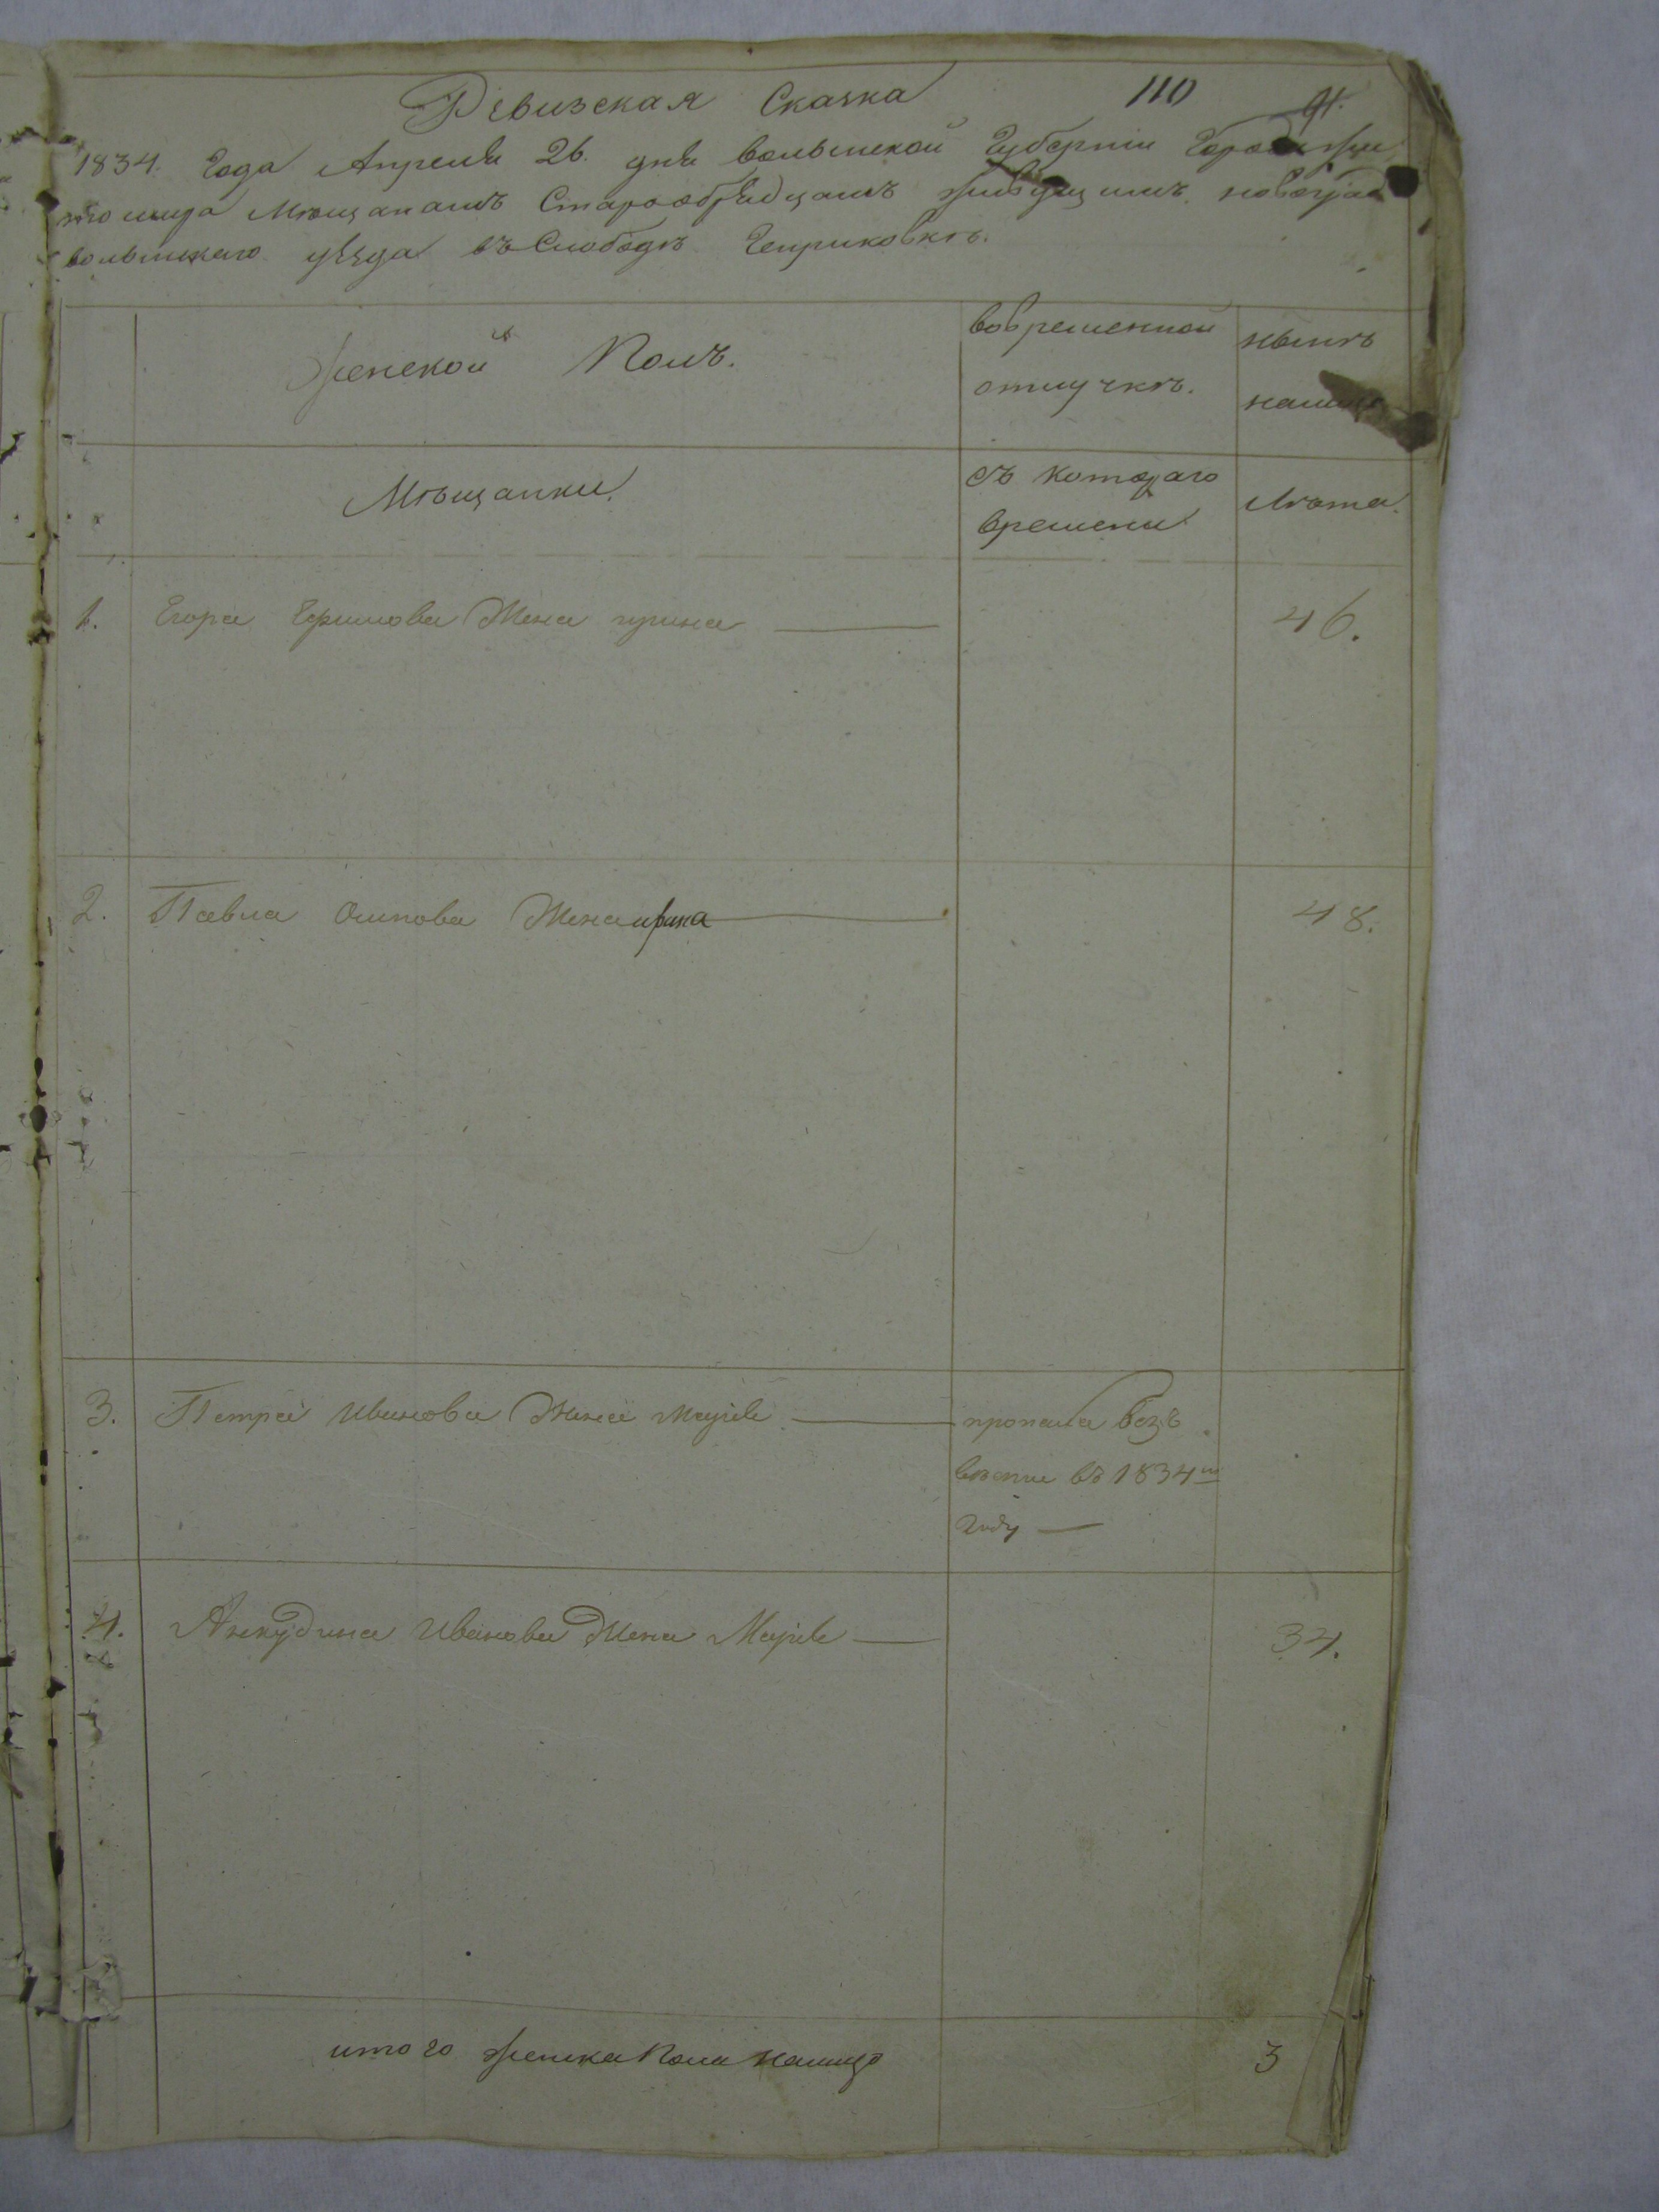 Ревизская Сказка 110
91.
1834. Года Апреля 26. дня волынской Губернiи Города Жи
томира Мѣщанамъ Старообрядцамъ живущимъ новоград
волынскаго уѣзда въ Слободѣ Генриковкѣ.
женской Полъ. вовременной отлучкѣ. нынѣ налицо
Мѣщанки. съ котораго времени Лѣта.
1. Егора Ефимова Жена ирина 46.
2. Павла Осипова Жена ирина 48.
3. Петра Иванова Жена Марiя пропала безъ
вѣсти въ 1834м
году
4. Анкудина Иванова Жена Марiя 34.
итого женска Пола налицо 3